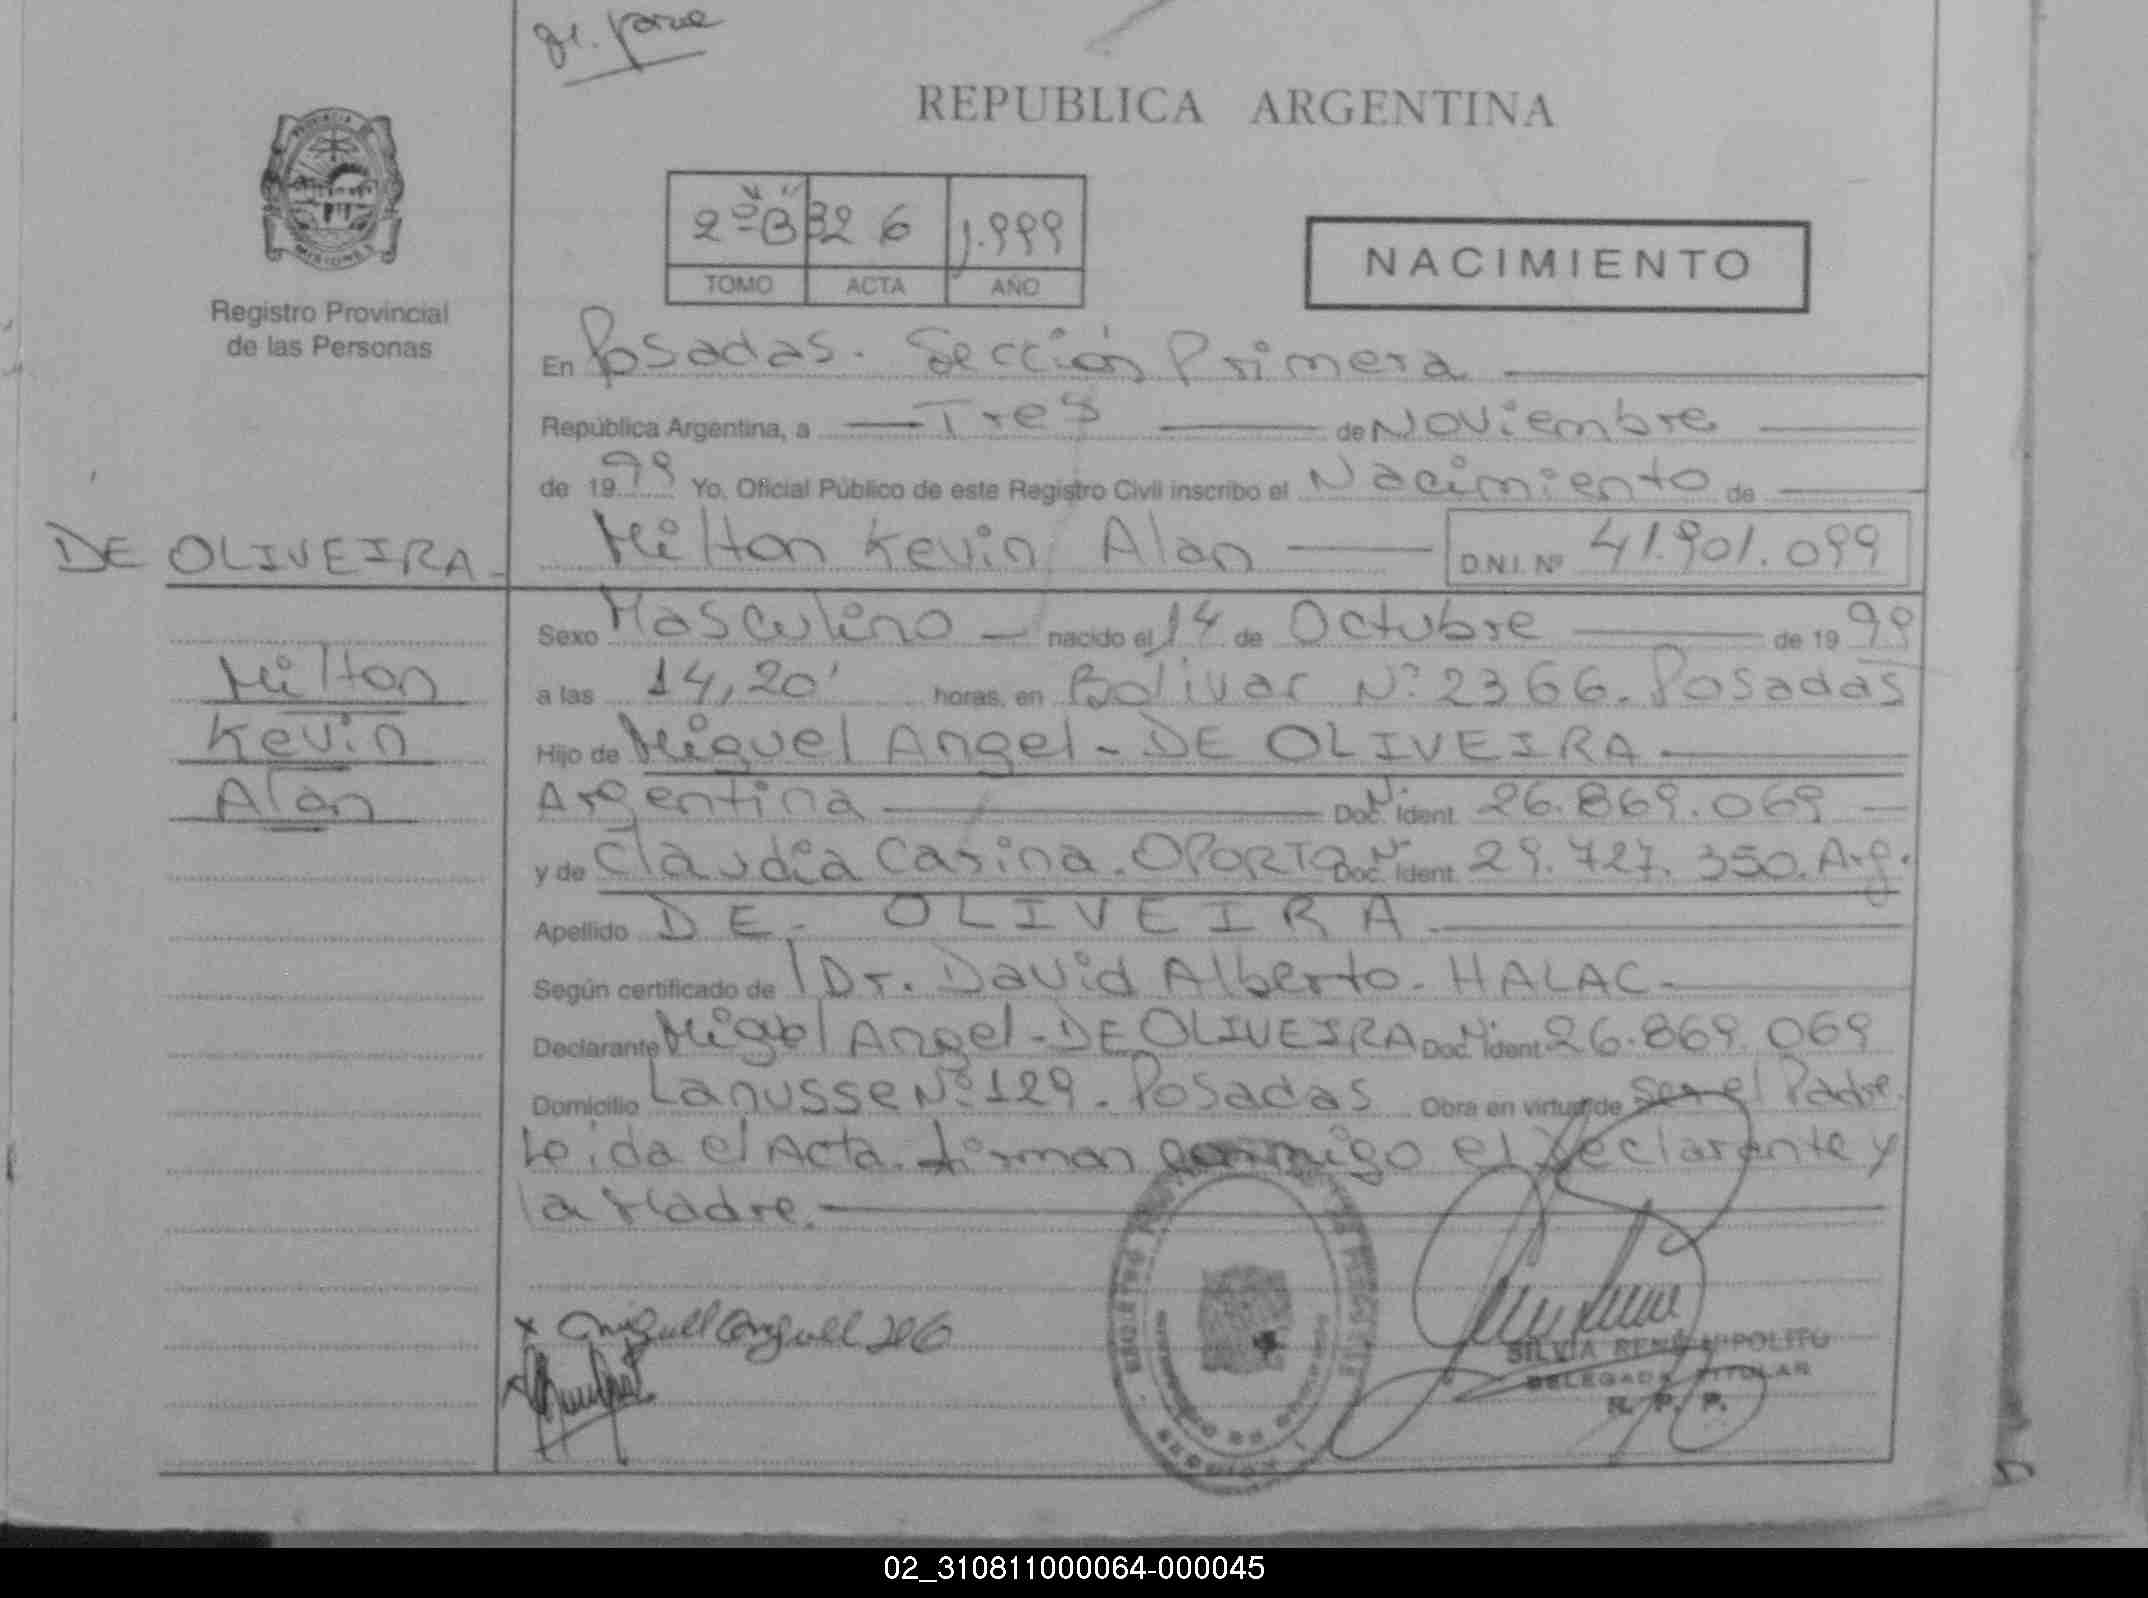 REPUBLICA ARGENTINA
PROVINCIA DE
MISIONES
Registro Provincial
de las Personas
2º "B" 326 1.999
TOMO ACTA AÑO
NACIMIENTO
En Posadas. Sección Primera
República Argentina, a Tres de Noviembre
de 1999 Yo. Oficial Público de este Registro Civil inscribo el Nacimiento de
DE OLIVEIRA Milton Kevin Alan D.N.I. Nº 41.901.099
Sexo Masculino nacido el 14 de Octubre de 1999
Milton
Kevin
Alan
a las 14,20' horas, en Bolivar Nº 2366. Posadas
Hijo de Miguel Angel - DE OLIVEIRA
Argentina Doc. Nº Ident. 26.869.069
y de Claudia Carina. OPORTO Doc. Nº Ident. 29.727.350. Arg.
Apellido DE - OLIVEIRA
Según certificado de Dr. David Alberto. HALAC
Declarante Miguel Angel - DE OLIVEIRA Doc. Nº Ident. 26.869.069
Domicilio Lanusse Nº 129. Posadas Obra en virtud de ser el Padre.
Leida el Acta. firman conmigo el Declarante y
la Madre.
SILVIA RENE HIPOLITO
DELEGADA TITULAR
R. P. P.
02_310811000064-000045